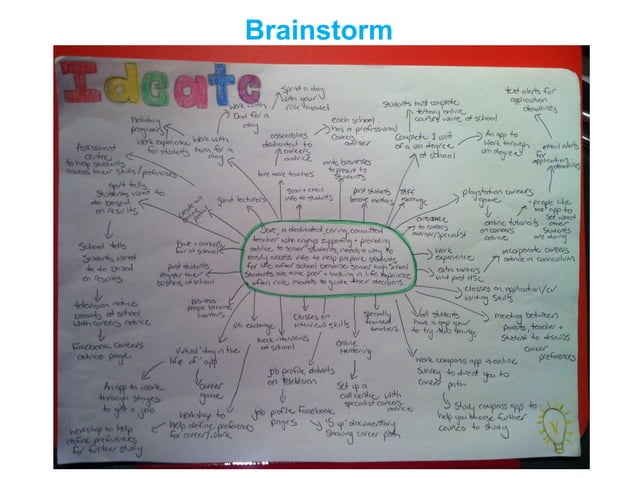 Brainstorm
Ideate
Holiday
programs
Work experience
for students
Work with
Dad for a
day
Spend a day
with your
role model
Work with
Mum for a
day
assemblies
dedicated to
careers
advice
each school
has a professional
careers
adviser
Students must complete
tertiary online
courses while at school
Complete 1 unit
of a uni degree
at school
An app to
work through
uni degree
text alerts for
application
deadlines
email alerts
for
application
deadlines
Assessment
centre
to help students
assess their skills/preferences
hire more teachers
scan + email
info to students
invite businesses
to present to
students
past students
become mentors
TAFE
exchange
guest lecturers
outsource
to careers
adviser/specialist
playstation careers
game
online tutorials
on careers
advice
'people like
me' app to
see what
other
students
are doing
govt tells
students what to
do based
on results
School tells
students what
to do based
on results
television notice
boards at school
with careers advice
Facebook careers
advice page
have a careers
fair at school
past students
register their
business at school
business
people become
mentors
Dave, a dedicated caring, committed
teacher who enjoys supporting + providing
advice to senior students, needs a way to
easily access info to help prepare students
for life after school because senior high school
students are time poor + lacking in life experience
often role models to guide their decisions.
Work
experience
extra careers
unit post HSC
incorporate careers
advice in curriculum
classes on application/cv
writing skills
meeting between
parents, teacher +
student to discuss
career
preferences
uni exchange
mock interviews
at school
classes on
interview skills
online
mentoring
specially
trained
teachers
all students
have a gap year
to try new things
Virtual 'day in the
life of' app
career
game
An app to work
through stages
to get a job
job profile
on television
Set up a
call centre with
specialist careers
advice
Work compass app -> online
survey to direct you to
career path
Workshop to help
define preferences
for further study
Workshop to
help define preferences
for career/work
job profile Facebook
pages
documentary
showing career path
Study compass app to
help you choose further
courses to study